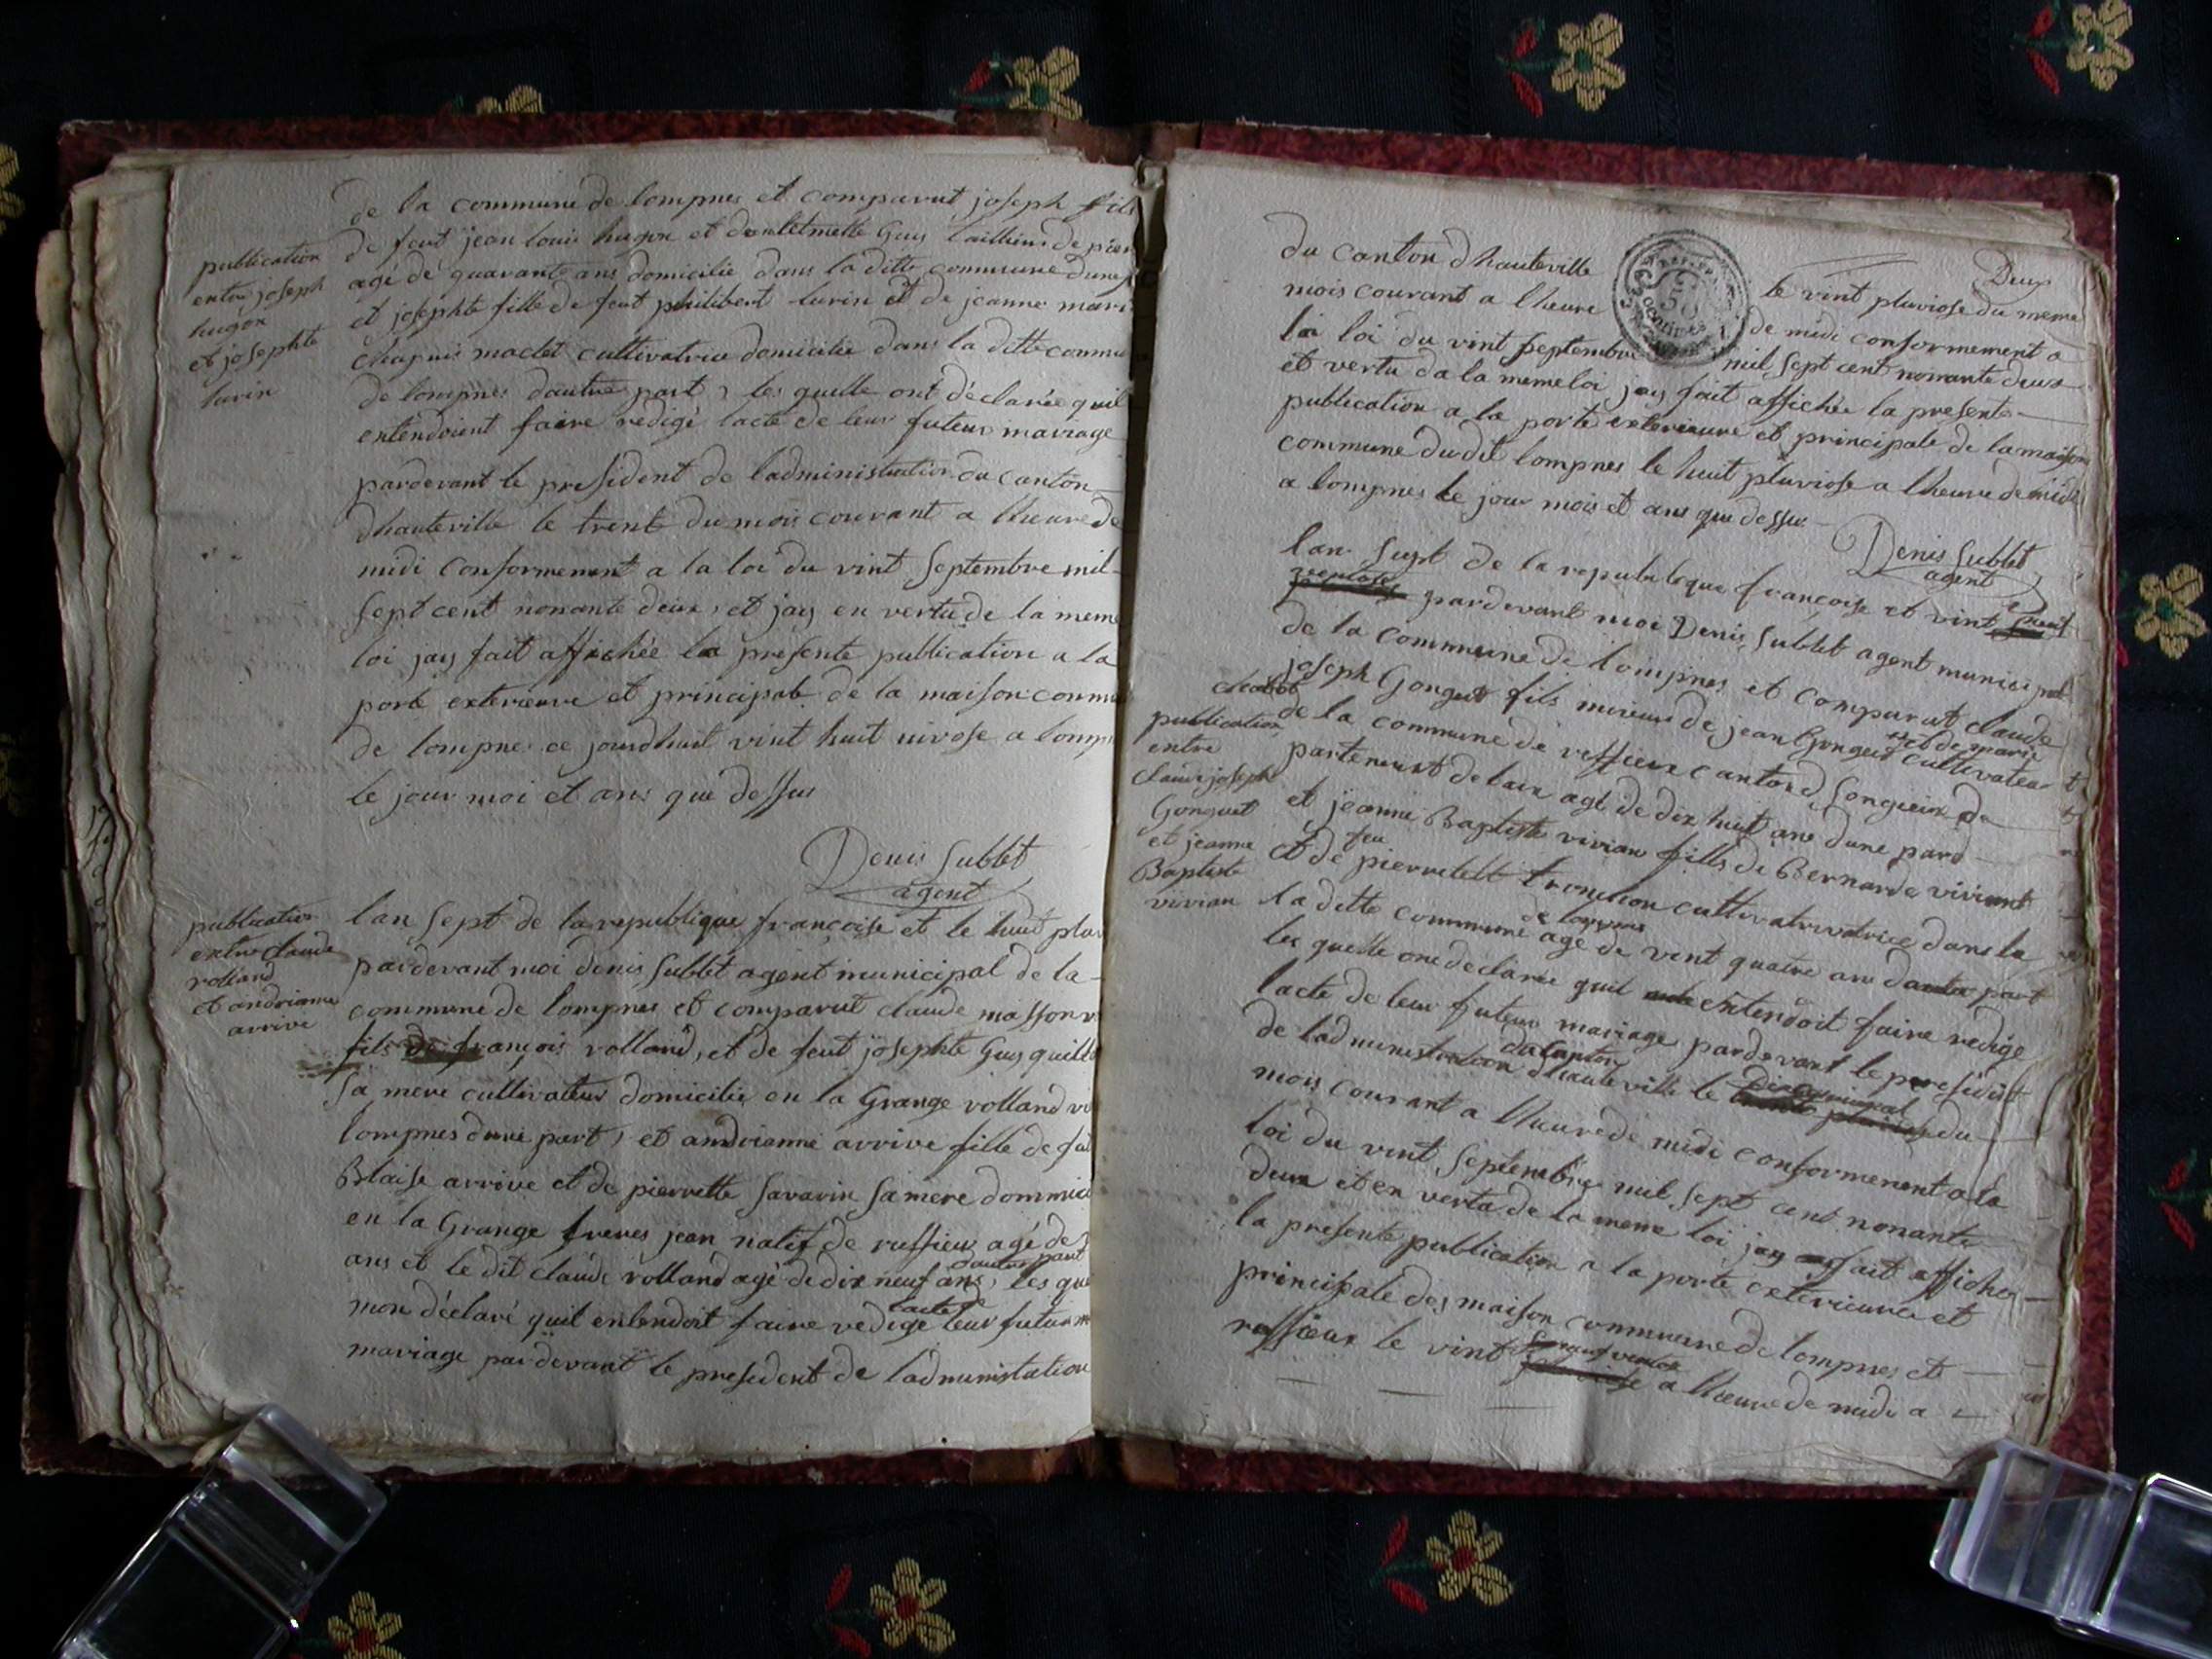 de la commune de lompnes et comparut joseph fils
de feut jean louis hugon et Guy tailleur de
agé de quarante ans domicilié dans la ditte commune dune
et josephte fille de feut philibert lurin et de jeanne mari
chapuis maclet cultivatrice domicilié dans la ditte commu
de lompnes dautre part, les quelle ont déclarée quil
entendoient faire redigé lacte de leur futeur mariage
pardevant le president de ladministration du canton
dhauteville le trente du mois courant a lheure de
midi conformement a la loi du vint septembre mil
sept cent nonante deux, et jay en vertu de la meme
loi jay fait affichée la presente publication a la
porte exterieure et principale de la maison commu
de lompnes ce jourdhuit vint huit nivose a lomp
le jour moi et ans que dessus
Denis Sublet
agent
publication
entre joseph
hugon
et josephte
lurin
lan sept de la republique françoise et le huit pluv
pardevant moi denis Sublet agent municipal de la
commune de lompnes et comparut claude masson
fils de françois rolland, et de feut josephte Guy
sa mere cultivateur domicilié en la Grange volland
lompnes dune part, et andrianne arrive fille de
Blaise arrive et de pierrette savarin sa mere dommici
en la Grange freres jean natif de ruffieu agé de
ans et le dit claude rolland agé de dix neuf ans, dautre part les que
mon déclaré quil entendoit faire redigé lacte leur futur
mariage par devant le president de ladministation
publication
entre claude
rolland
et andrianne
arrive
Deux
du canton dhauteville le vint pluviose du meme
mois courant a lheure de midi conformement a
la loi du vint septembre mil sept cent nonante deux
et vertu da la meme loi jay fait affichée la presente
publication a la porte exterieure et principale de la maison
commune dudit lompnes le huit pluviose a lheure de midi
a lompnes le jour mois et ans que dessus
Denis Sublet
agent
lan sept de la republique françoise et vint
pardevant moi Denis Sublet agent municipal
de la commune de lompnes et comparut claude
joseph Gonguet fils mineur de jean Gonguet et de marie
de la commune de ruffieux canton d Songieux cultivateur
partement de lain agé de dix huit ans dune pard
et jeanne Baptiste vivian fille de Bernarde viviant
et de feu pierrette tronchon dans la
la ditte commune de lompnes agé de vent quatre ans dautre part
les quelle one declarée quil entendoit faire redigé
lacte de leur futeur mariage pardevant le president
de ladministration du canton dhauteville le du
mois courant a lheure de midi conformement a la
loi du vint septembre mil sept cent nonante
deux et en vertu de la meme loi jay fait affiche
la presente publication a la porte exterieure et
principale des maison commune de lompnes et
ruffieux le vint neuf ventose a lheure de midi a
publication
entre
claude joseph
Gonguet
et jeanne
Baptiste
vivian